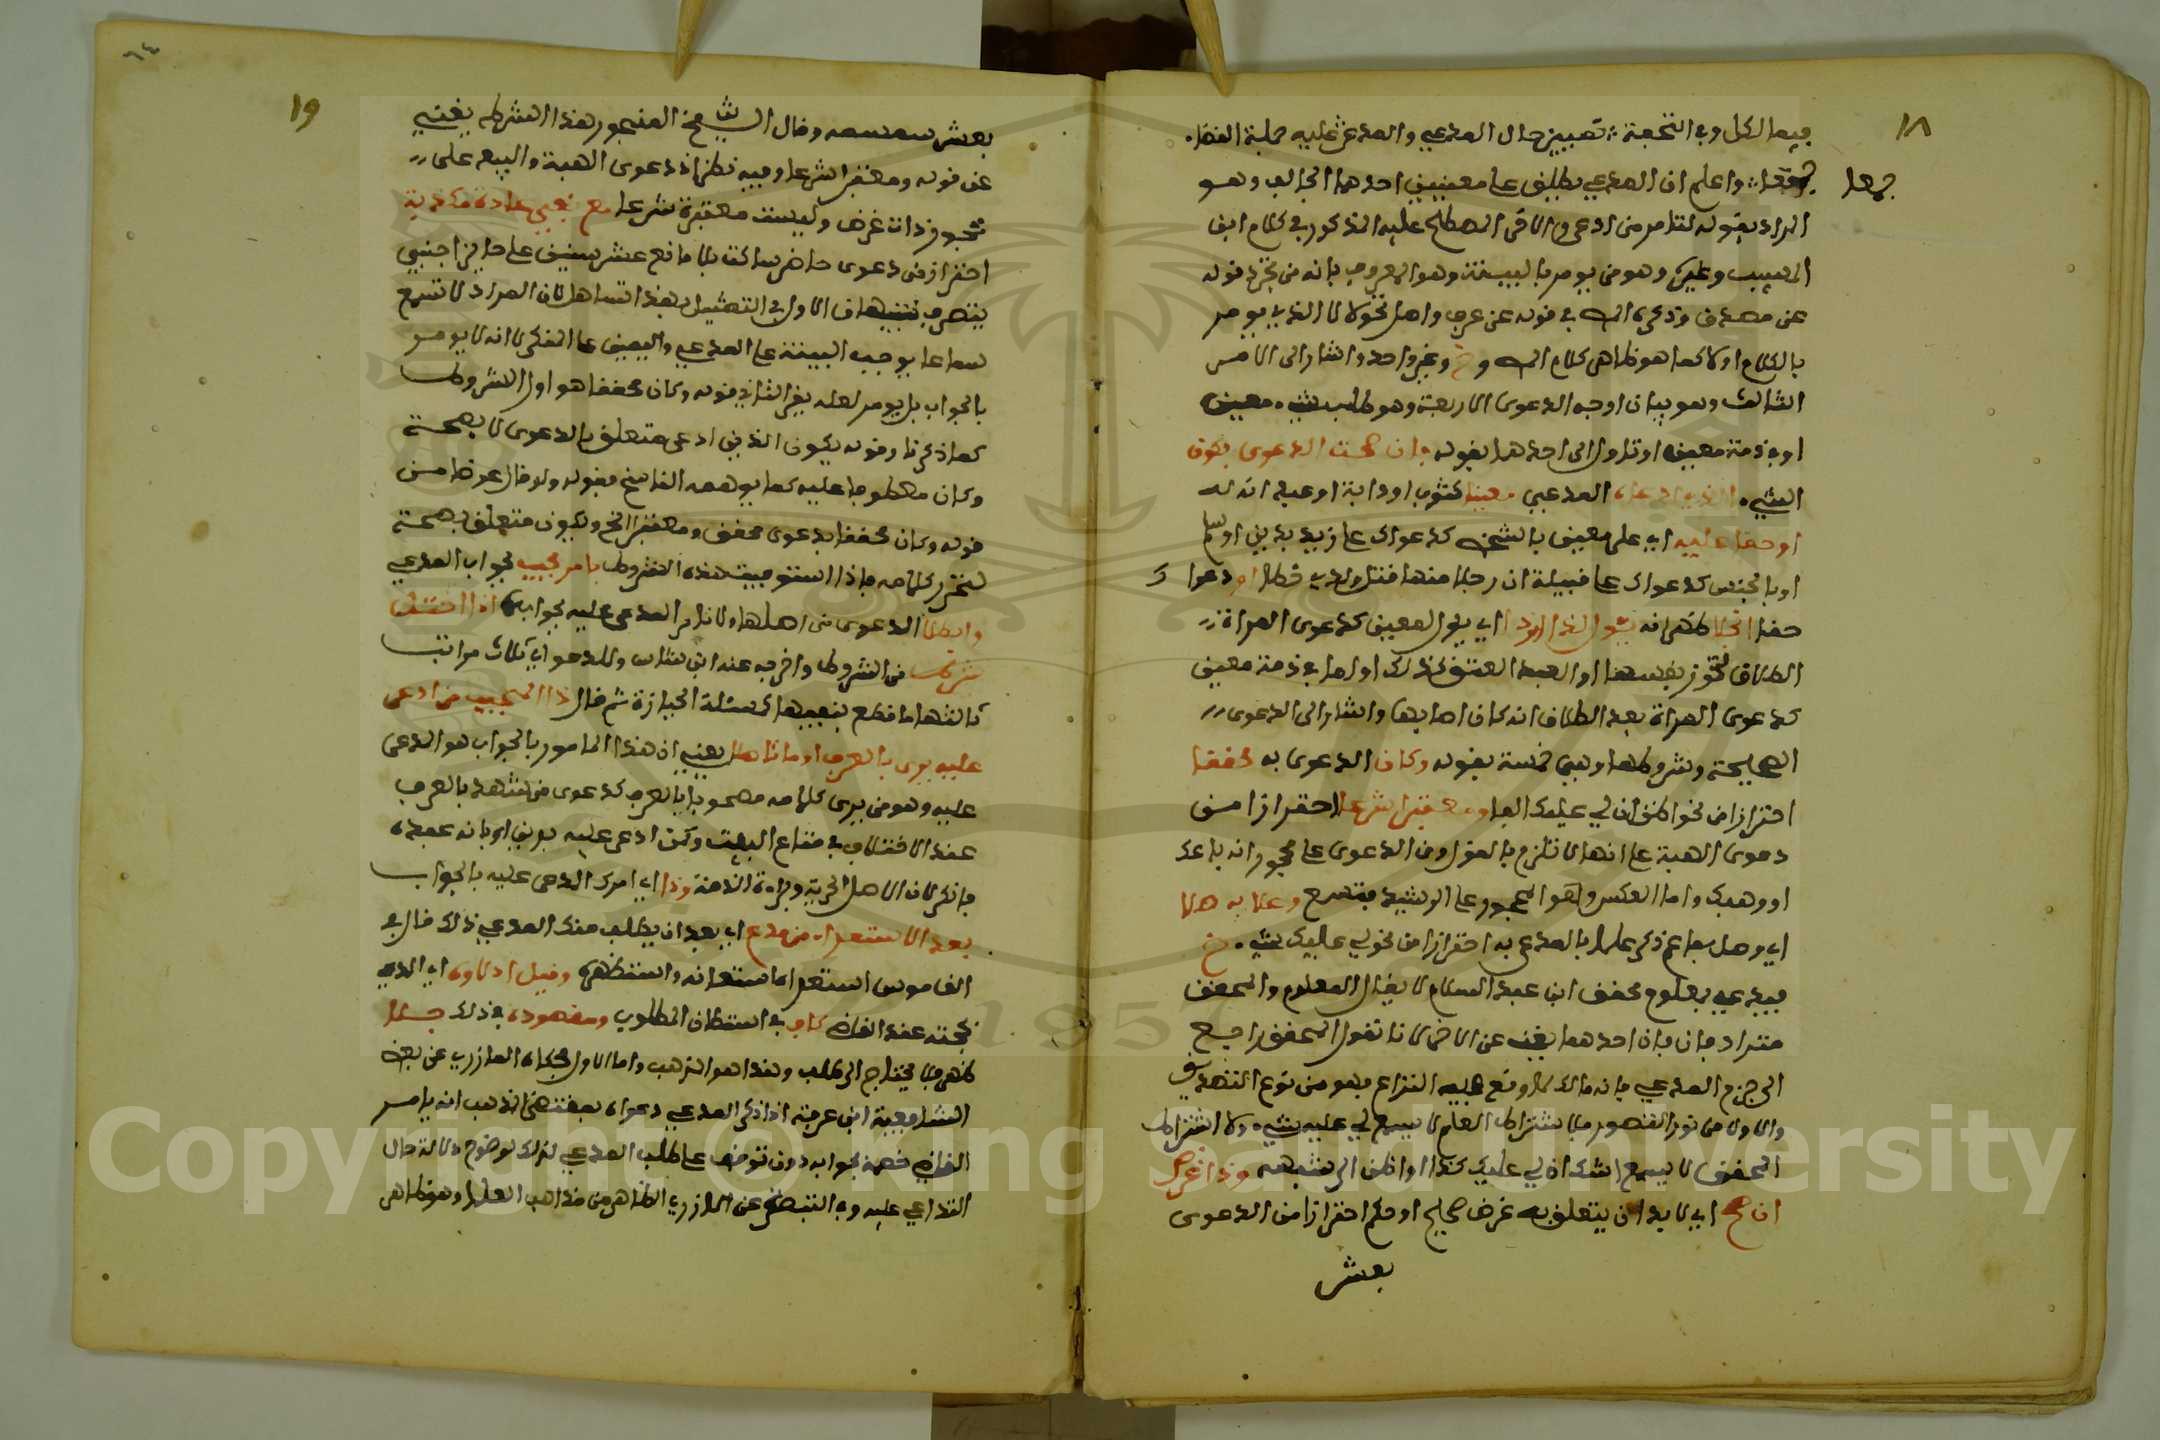 ١٨
فيها الكل وفي التحفة تمييز حال المدعي والمدعى عليه جملة القضاء
جمعا
جمعا واعلم ان المدعي يطلق على معنيين احدهما الجالب وهو
المراد بقوله لتامر من ادعى والاتي المصطلح عليه المذكور في كلام ابن
المسيب وغيره وهو من يومر بالبينة وهو المعروف بانه من تجرد قوله
عن مصدق وذكره في قوله عن عرف واصل تحولا لا الذي يومر
بالكلام اولا كما هو ظاهر كلام وغير واحد واشار الى الامر
الثالث وهو بيان اوجه الدعوى الاربعة وهو طلب شيء معين
او في ذمة معين اوتاول الى احدهما بقوله وان صحت الدعوى بكون
الشيء الذي ادعاه المدعي معينا كثوب او دابة او عبد انه له
او حقا عليه اي على معين بالشخص كدعواك على زيد بدين او
او بالجنس كدعواك على قبيلة ان رجلا منها قتل وليد خطا او دعوا
حقا يئول لذا اي يول المعين كدعوى المراة
الطلاق لتحوز بضعها او العبد العتق كذلك او لما في ذمة معين
كدعوى المراة بعد الطلاق انه كان اصابها واشار الى الدعوى
الصحيحة وشروطها وهي خمسة بقوله وكان الدعوى به محققا
احترازا من نحو اظن ان لي عليك الفا ومعتبرا شرعا احترازا من
دعوى الهبة على انها لا تلزم بالقول ومن الدعوى على محجور انه باعك
او وهبك واما العكس وهو المحجور على الرشيد فتسمع وعلما به
اي وصل سامع ذكر علما بالمدعى به احترازا من نحو لي عليك شيء
فيدعي بمعلوم محقق ابن عبد السلام لا يقال المعلوم والمحقق
مترادفان فان احدهما يغني عن الاخر لانا نقول المحقق راجع
الى جزم المدعي بانه مالك لما وقع عليه النزاع فهو من نوع التصديق
والاول من نوع التصور فلاشتراط العلم لا يسمع لي عليه شيء ولاشتراط
المحقق لا يسمع اشك ان لي عليك كذا او اظن الى شبهه وذا غرض
ان صح اي لا بد ان يتعلق به غرض صحيح او حكم احترازا من الدعوى
بعشر
١٩
بعشر سمسمه وقال الشيخ المنجور هذا الشرط يغني
عن قوله ومعتبرا شرعا وفيه نظر اذ دعوى الهبة والبيع على
محجور ذات غرض وليست معتبرة شرعا مع نفي عادة مكذبة
احترازا من دعوى حاضر ساكت بلا مانع عشر سنين على حايز اجنبي
يتصرف تنبيهان الاول في التمثيل بهذا تساهل لان المراد لا تسمع
سماعا يوجب البينة على المدعي واليمين على المنكر لا انه لا يومر
بالجواب بل يومر لعله يقر الثاني قوله وكان محققا هو اول الشروط
كما ذكرنا وقوله يكون الذي ادعى متعلق بالدعوى لا بصحة
وكان معطوفا عليه كما يوهمه الفاسخ فقوله ولو قال عوضا من
قوله وكان محققا بدعوى محقق ومعتبر الخ ويكون متعلق بصحة
لتحرر كلامه فاذا استوفيت هذه الشروط بامر يجيب بجواب المدعي
وابطل الدعوى من اصلها ولا تامر المدعى عليه بجواب اذا اختل
شرط من الشروط واخرجه عند ابن شاس وللدعوى ثلاث مراتب
ثالثها ما قطع بنفيها كمسئلة الحيازة ثم قال ذا المجيب من ادعي
عليه يرى بالعرف او ما ماثل يعني ان هذا المامور بالجواب هو المدعى
عليه وهو من يرى كلامه مصحوبا بالعرف كدعوى من شهد بالعرف
عند الاختلاف في متاع البيت وكمن ادعى عليه بدين او بانه عبده
فانكر لان الاصل الحرية وبراءة الذمة وذا اي امرك المدعى عليه بالجواب
بعد الاستعداء من مدع اي بعد ان يطلب منك المدعي ذلك قال في
القاموس استعداه استعانه واستنصره وقيل ادلاؤه اي المدعي
بحجته عند القاضي كاف في استنطاق المطلوب ومقصوده في ذلك جلا
ظهر فلا يحتاج الى طلب وهذا هو المذهب واما الاول فحكاه المازري عن بعض
الشافعية ابن عرفة اذا ذكر المدعي دعواه بمقتضى المذهب انه يامر
القاضي خصمه بجوابه دون توقف على طلب المدعي لذلك لوضوح دلالة حال
التداعي عليه وفي التبصرة عن المازري الظاهر من مذاهب العلماء وهو ظاهر
Copyright © King Saud University
1957